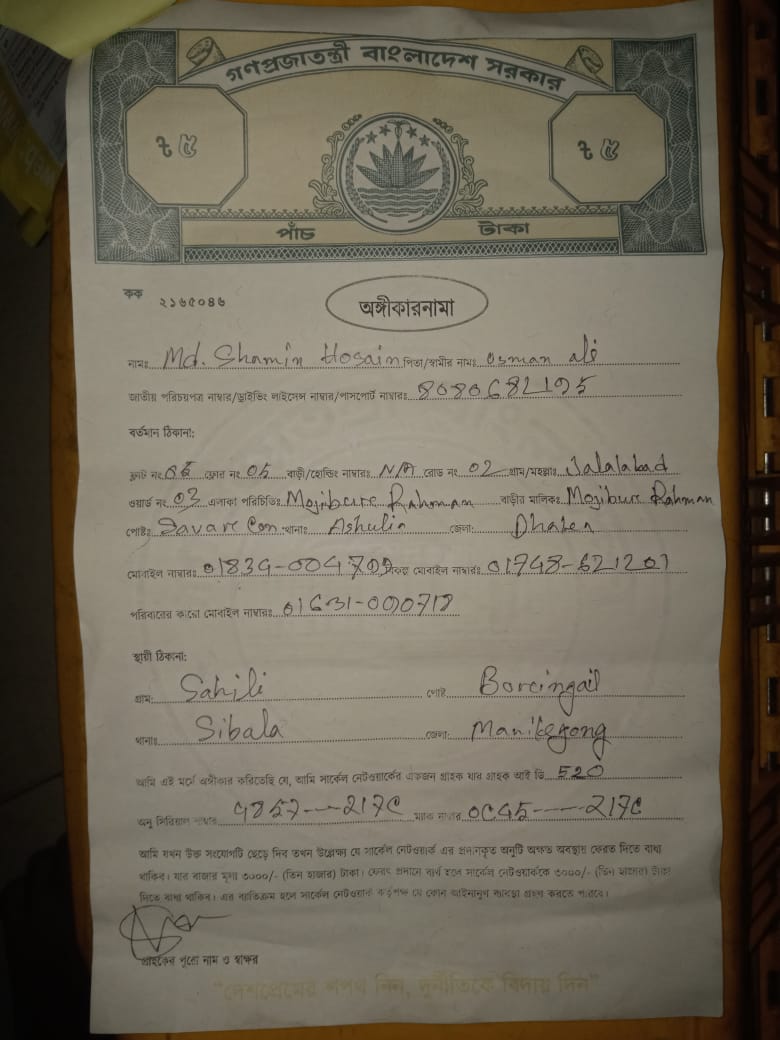 গণপ্রজাতন্ত্রী বাংলাদেশ সরকার
৳ ৫ ৳ ৫
পাঁচ টাকা
কক ২১৬৫০৪৬
অঙ্গীকারনামা
নামঃ Md. Shamin Hosain পিতা/স্বামীর নামঃ osman ali
জাতীয় পরিচয়পত্র নাম্বার/ড্রাইভিং লাইসেন্স নাম্বার/পাসপোর্ট নাম্বারঃ 8080682195
বর্তমান ঠিকানা:
ফ্লাট নং ফ্লোর নং 05 বাড়ী/হোল্ডিং নাম্বারঃ N/A রোড নং 02 গ্রাম/মহল্লাঃ Jalalabad
ওয়ার্ড নং 03 এলাকা পরিচিতিঃ Mojibure Rahman বাড়ীর মালিকঃ Mojibure Rahman
পোষ্টঃ Savare Can. থানাঃ Ashulia জেলা:
মোবাইল নাম্বারঃ মোবাইল নাম্বারঃ 01748-621201
পরিবারের কারো মোবাইল নাম্বারঃ
স্থায়ী ঠিকানা:
গ্রাম: Sahili পোষ্ট
থানাঃ Sibala জেলা:
আমি এই মর্মে অঙ্গীকার করিতেছি যে, আমি সার্কেল নেটওয়ার্কের একজন গ্রাহক যার গ্রাহক আই ডি 520
অনু সিরিয়াল নাম্বার ম্যাক নাম্বার
আমি যখন উক্ত সংযোগটি ছেড়ে দিব তখন উল্লেক্ষ্য যে সার্কেল নেটওয়ার্ক এর প্রদানকৃত অনুটি অক্ষত অবস্থায় ফেরত দিতে বাধ্য
থাকিব। যার বাজার মূল্য ৩০০০/- (তিন হাজার) টাকা। ফেরৎ প্রদানে ব্যর্থ হলে সার্কেল নেটওয়ার্ককে ৩০০০/- (তিন হাজার) টাকা
দিতে বাধ্য থাকিব। এর ব্যতিক্রম হলে সার্কেল নেটওয়ার্ক কর্তৃপক্ষ যে কোন আইনানুগ ব্যবস্থা গ্রহণ করতে পারবে।
গ্রাহকের পুরো নাম ও স্বাক্ষর
"দেশপ্রেমের শপথ নিন, দুর্নীতিকে বিদায় দিন"